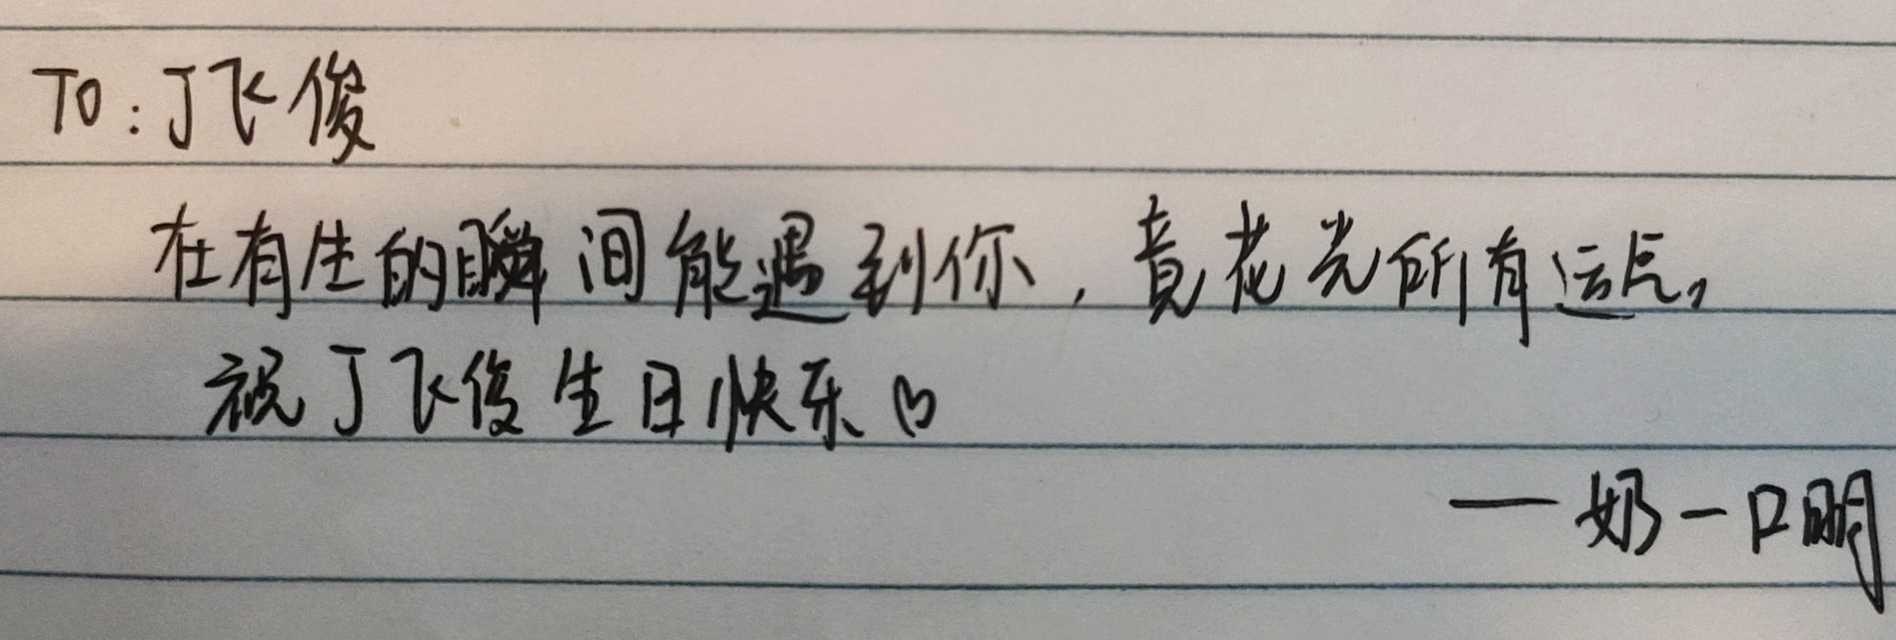 TO:丁飞俊
在有生的瞬间能遇到你,竟花光所有运气。
祝丁飞俊生日快乐♡
——奶一口明